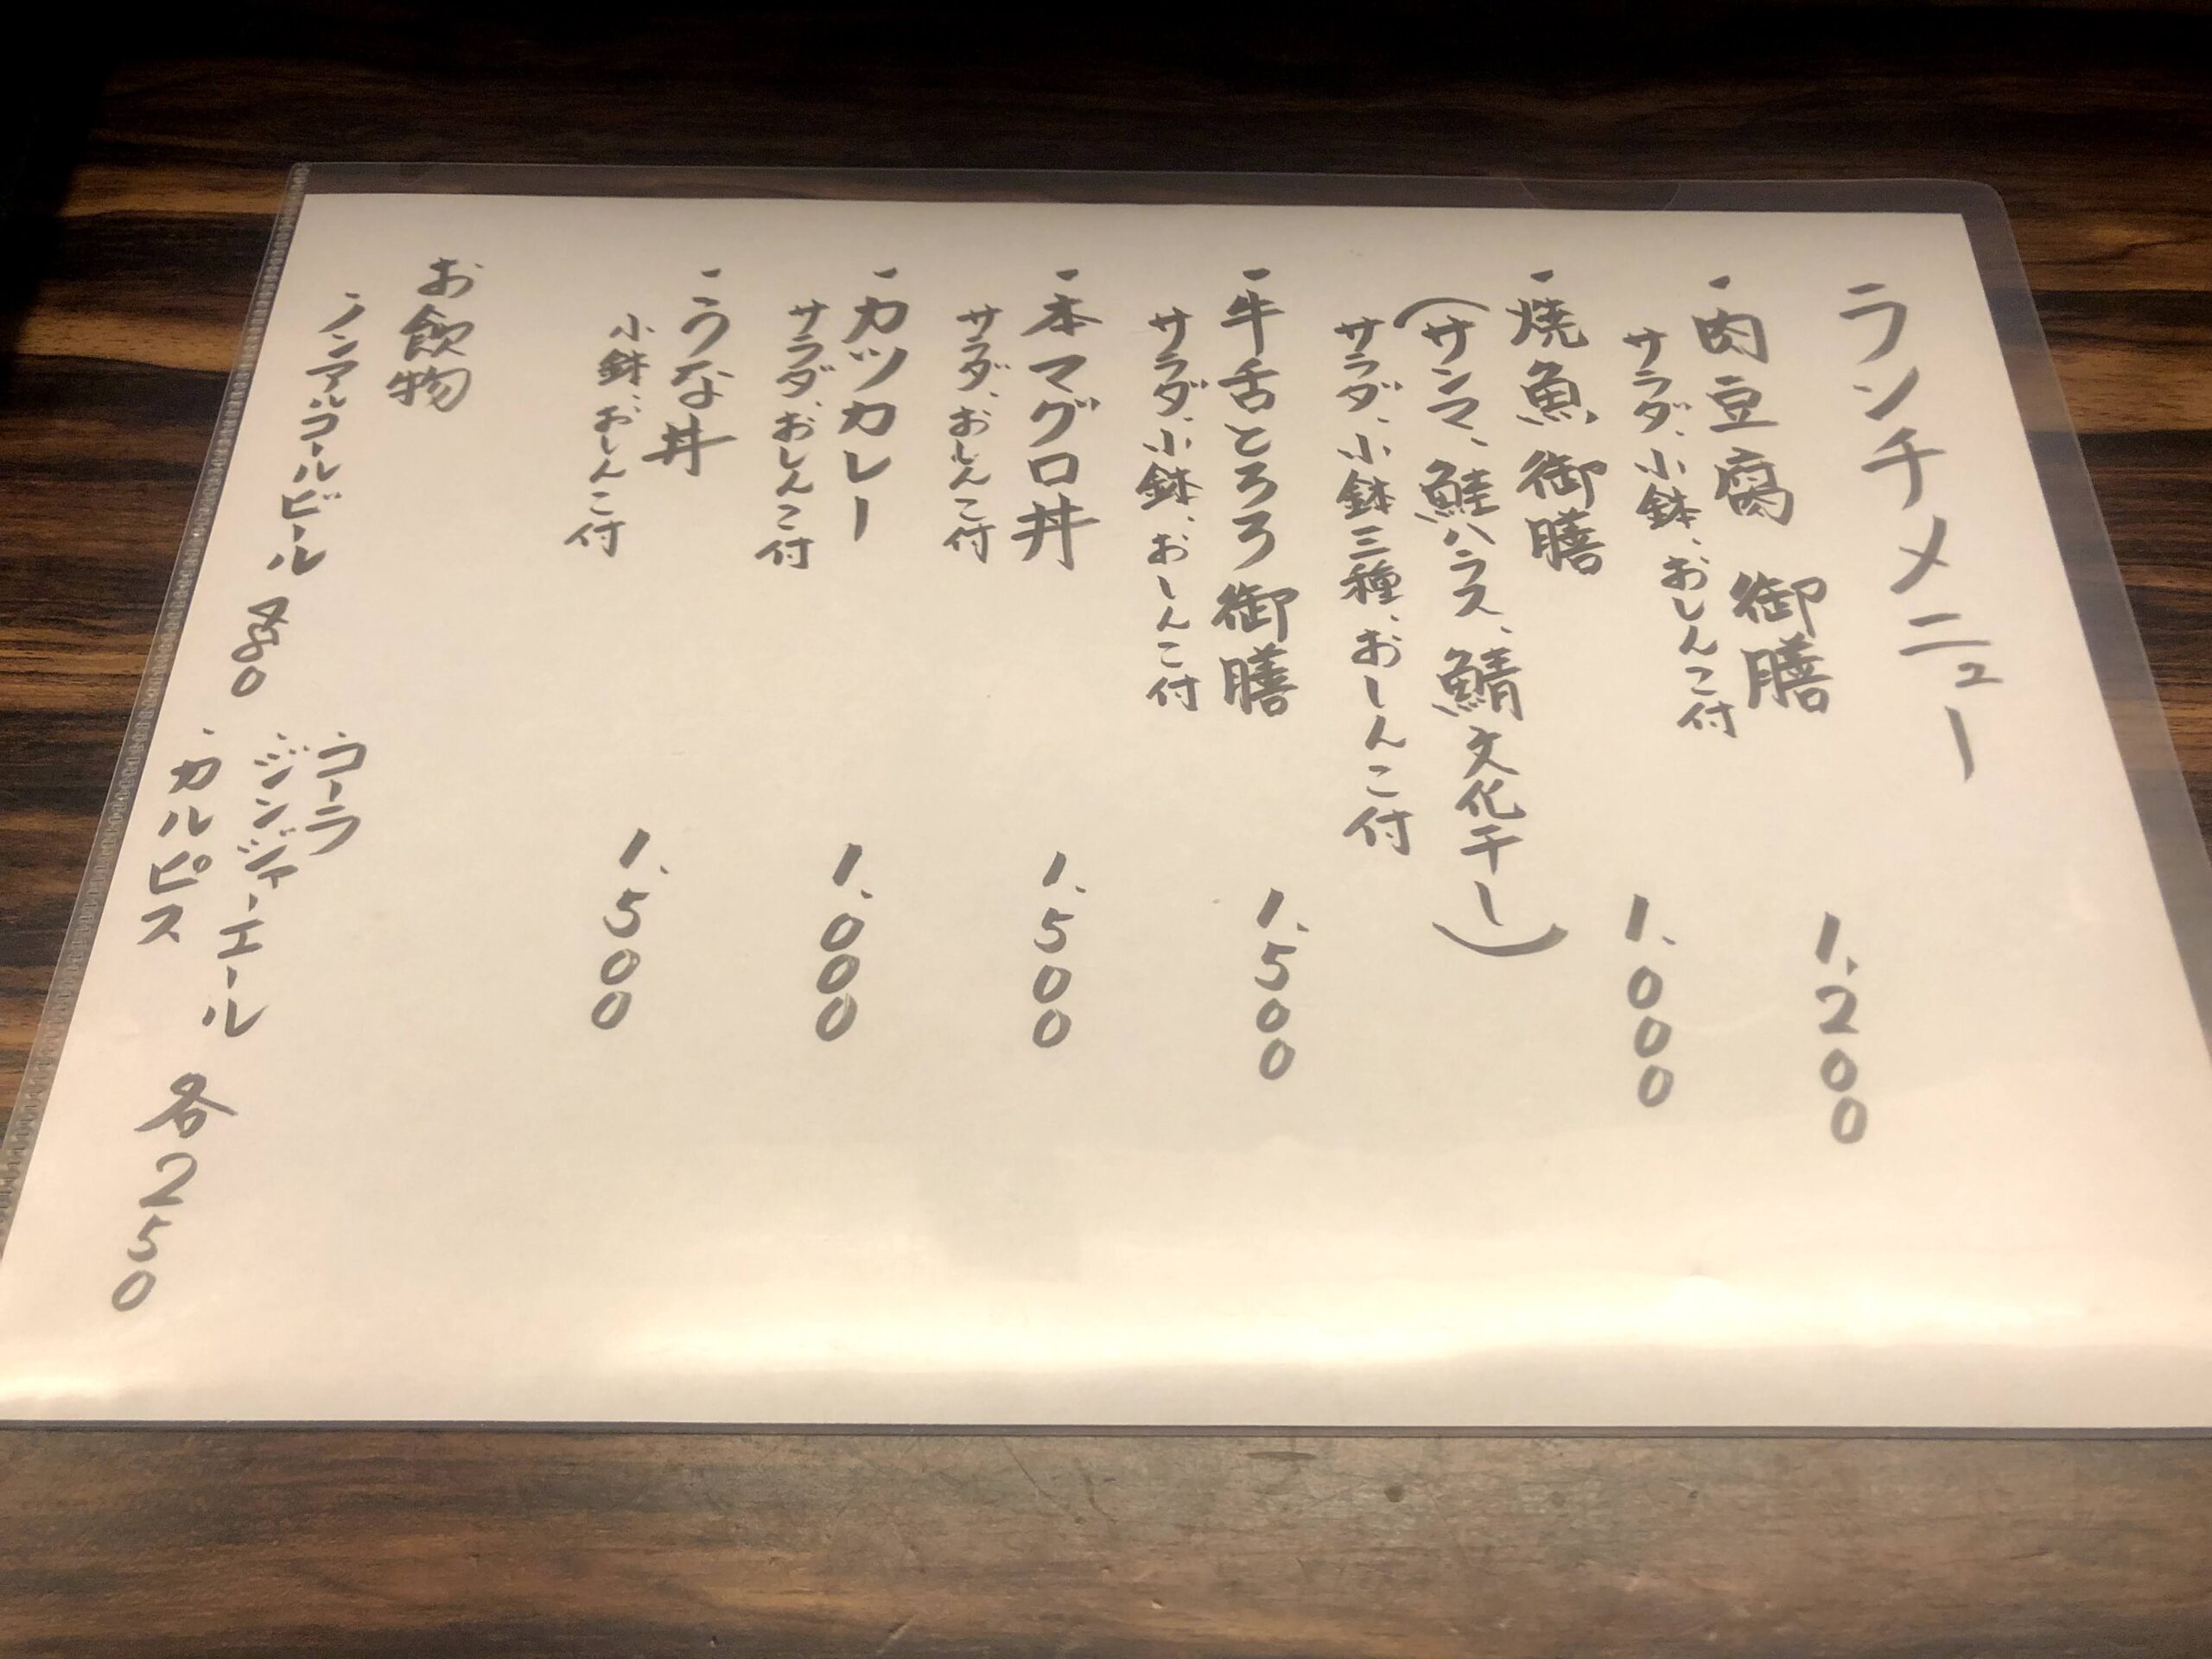 ランチメニュー
・肉豆腐 御膳 1,200
サラダ、小鉢、おしんこ付
・焼魚 御膳 1,000
(サンマ、鮭ハラス、鯖文化干し)
サラダ、小鉢三種、おしんこ付
・牛舌とろろ御膳 1,500
サラダ、小鉢、おしんこ付
・本マグロ丼 1,500
サラダ、おしんこ付
・カツカレー 1,000
サラダ、おしんこ付
・うな丼 1,500
小鉢、おしんこ付
お飲物
・ノンアルコールビール
・コーラ
・ジンジャーエール
・カルピス
各250